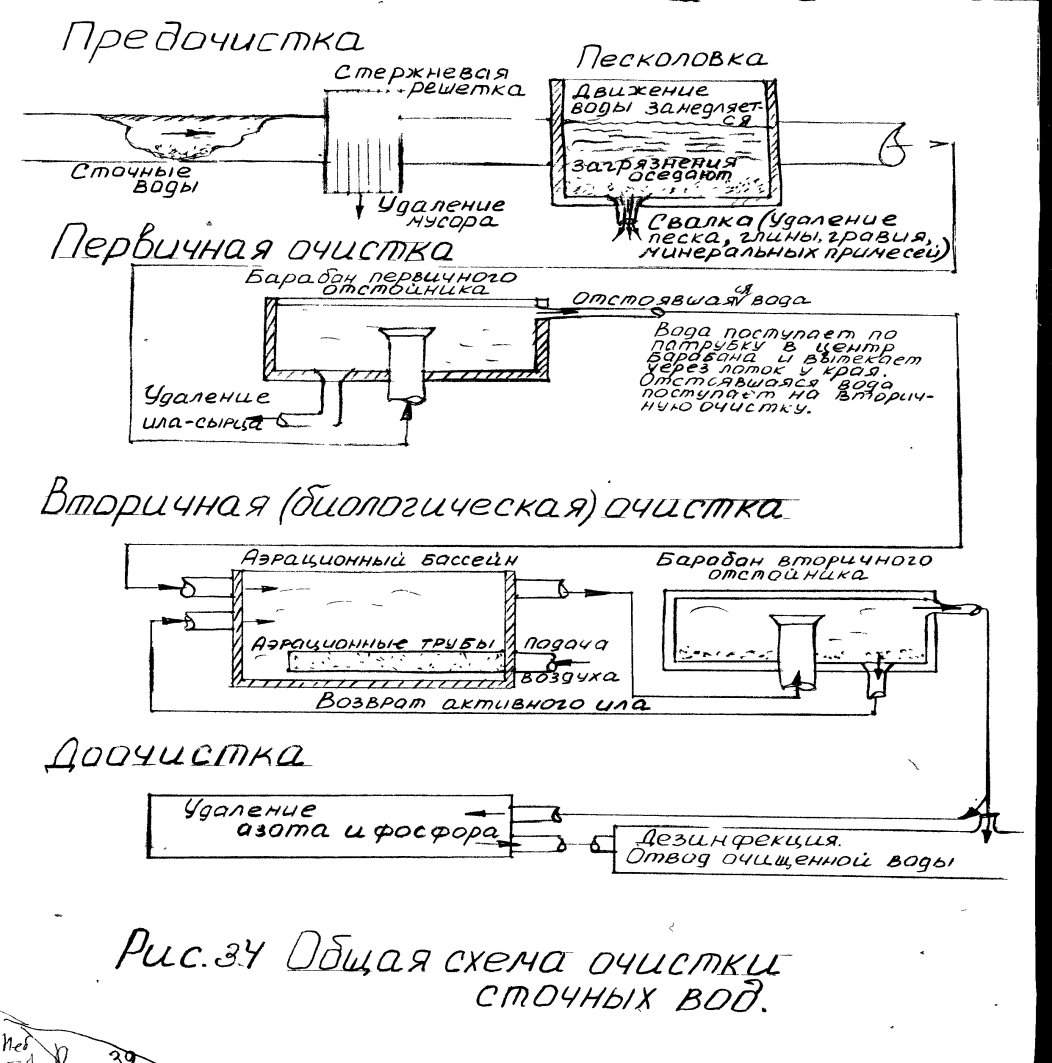 Предочистка
Стержневая
решетка
Песколовка
Движение
воды занедляет-
ся
Загрязнения
оседают
Сточные
воды
Удаление
мусора
Свалка (Удаление
песка, глины, гравия,
минеральных примесей)
Первичная очистка
Барабан первичного
отстойника
Отстоявшаяся вода
Вода поступает по
патрубку в центр
барабана и вытекает
через лоток у края.
Отстоявшаяся вода
поступает на вторич-
ную очистку.
Удаление
ила-сырца
Вторичная (биологическая) очистка
Аэрационный бассейн
Барабан вторичного
отстойника
Аэрационные трубы
Подача
воздуха
Возврат активного ила
Доочистка
Удаление
азота и фосфора
Дезинфекция.
Отвод очищенной воды
Рис. 34 Общая схема очистки
сточных вод.
39